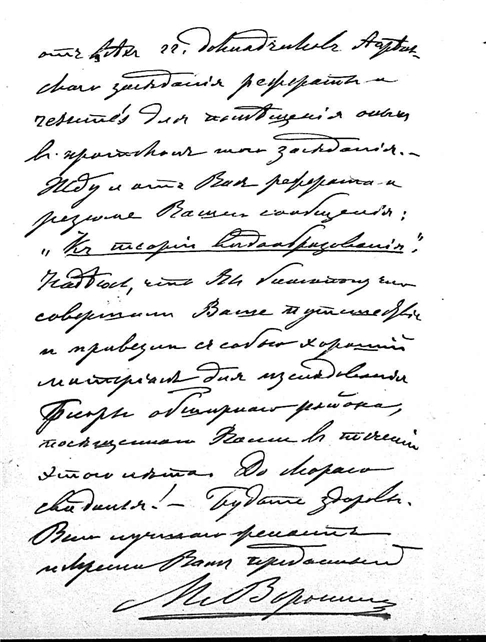 отъ всѣхъ гг. докладчиковъ
скаго засѣданія рефераты и
для помѣщенія оныхъ
въ протоколъ того засѣданія.—
Жду и отъ Васъ реферата и
резюме Вашего сообщенія:
„Къ теоріи видообразованія“.
Надѣюсь, что Вы благополучно
совершили Ваше путешествіе
и привезли съ собою хорошій
матеріалъ для изслѣдованія
флоры обширнаго района,
посѣщеннаго Вами въ теченіи
этого лѣта. До скораго
свиданья! — Будьте здоровы.
Ваш
и Вамъ преданный
М. Воронинъ